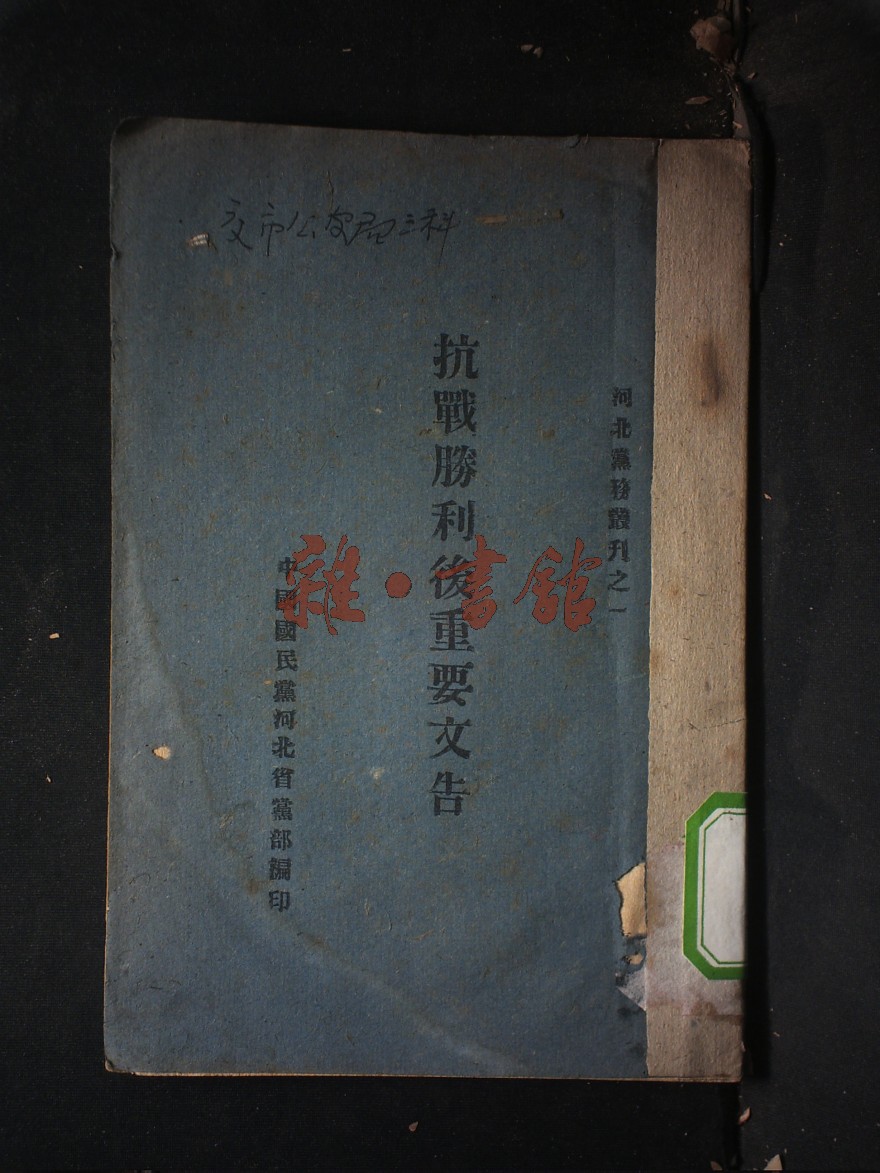 河北黨務叢刊之一
抗戰勝利後重要文告
中國國民黨河北省黨部編印
交市公安局三科
雜·書館